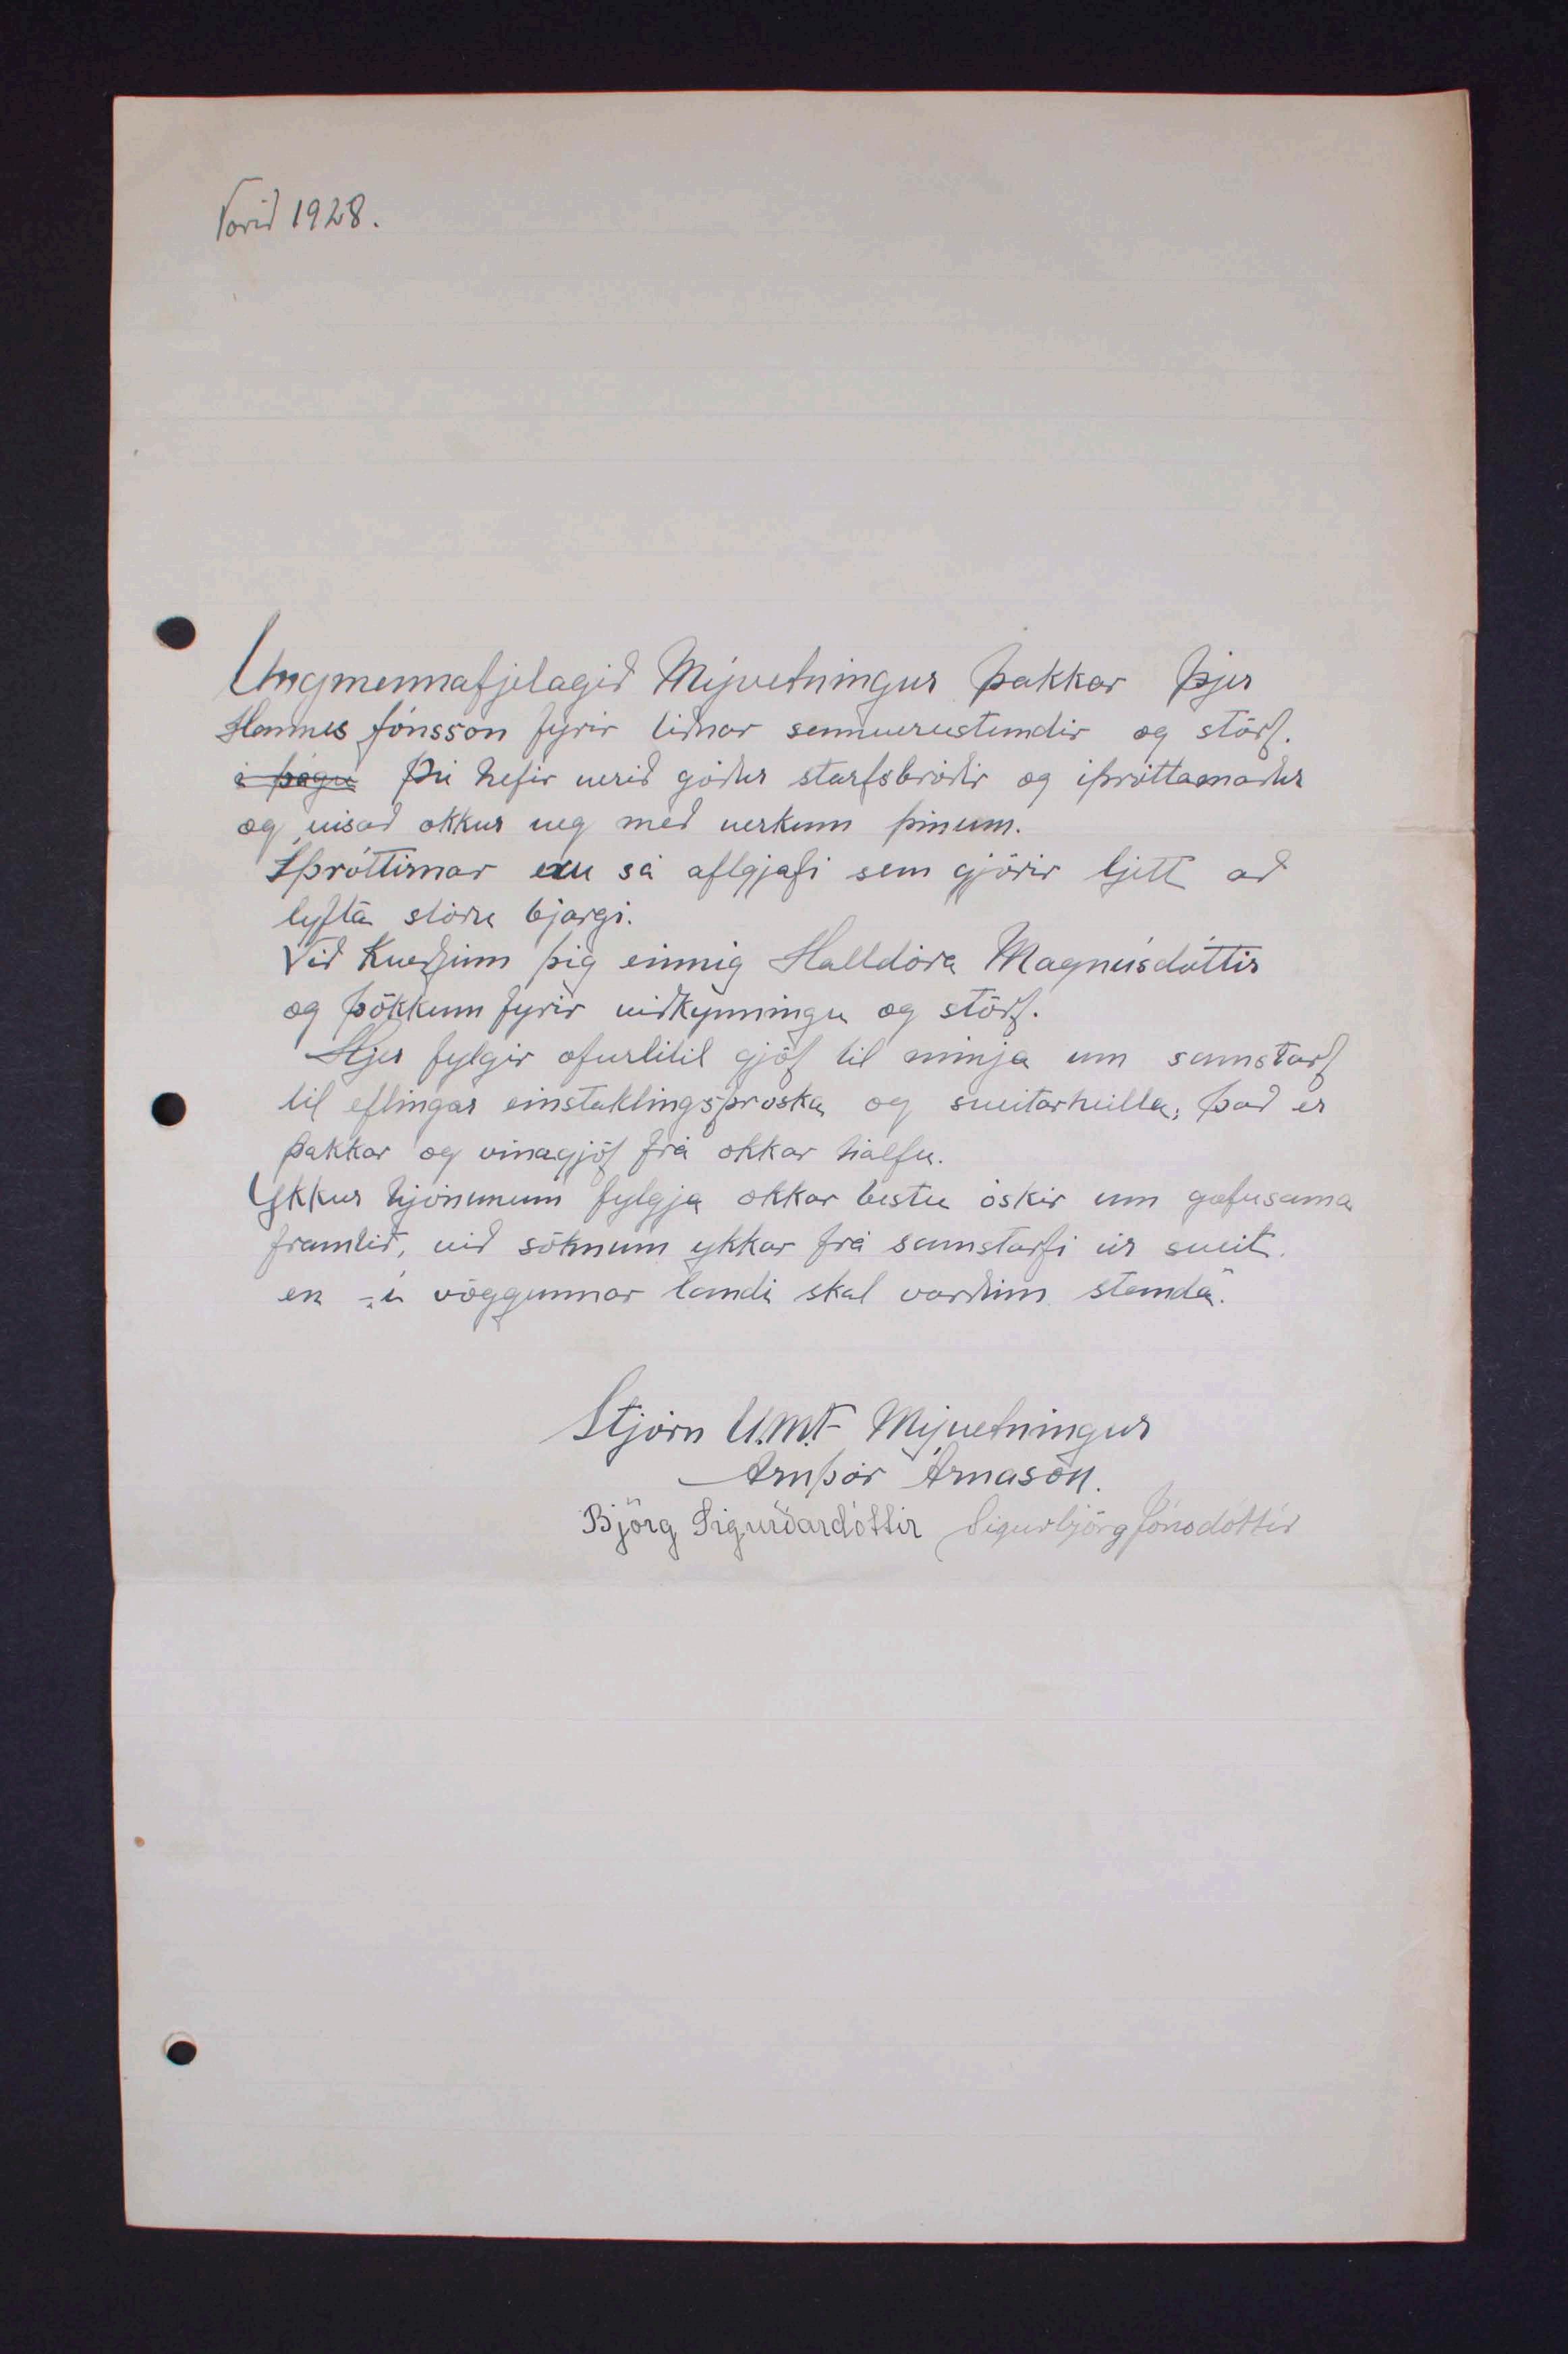 Vorið 1928.
Ungmennafjelagið Mývetningur þakkar þjer
Hannes Jónsson fyrir liðnar samverustundir og störf.
í þágu Þú hefir verið góður starfsbróðir og íþróttamaður
og vísað okkur veg með verkum þínum.
Íþróttirnar eru sá aflgjafi sem gjörir ljett að
lyfta stóru bjargi.
Við kveðjum þig einnig Halldóra Magnúsdóttir
og þökkum fyrir viðkynningu og störf.
Hjer fylgir ofurlitil gjöf til minja um samstarf
til eflingar einstaklingsþroska og sveitarheilla, það er
þakkar og vinagjöf frá okkar hálfu.
Ykkur hjónunum fylgja okkar bestu óskir um gæfusama
framtíð, við söknum ykkar frá samstarfi úr sveit.
en - í vöggunnar landi skal varðinn standa.
Stjórn U.M.F. Mývetningur
Arnþór Árnason.
Björg Sigurðardóttir Sigurbjörg Jónsdóttir